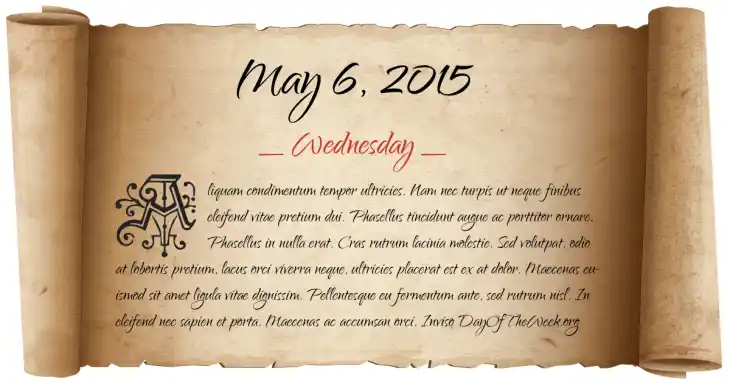 May 6, 2015
_ Wednesday _
Aliquam condimentum tempor ultricies. Nam nec turpis ut neque finibus
eleifend vitae pretium dui. Phasellus tincidunt augue ac porttitor ornare.
Phasellus in nulla erat. Cras rutrum lacinia molestie. Sed volutpat, odio
at lobortis pretium, lacus orci viverra neque, ultricies placerat est ex at dolor. Maecenas eu-
ismod sit amet ligula vitae dignissim. Pellentesque eu fermentum ante, sed rutrum nisl. In
eleifend nec sapien et porta. Maecenas ac accumsan orci. Inviso DayOfTheWeek.org